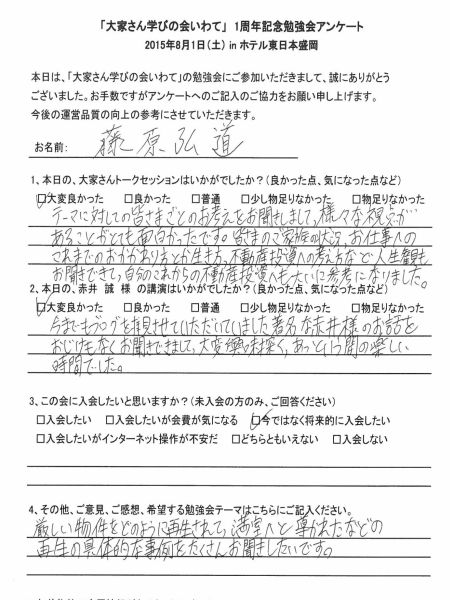 「大家さん学びの会いわて」 1周年記念勉強会アンケート
2015年8月1日(土) in ホテル東日本盛岡
本日は、「大家さん学びの会いわて」の勉強会にご参加いただきまして、誠にありがとう
ございました。お手数ですがアンケートへのご記入のご協力をお願い申し上げます。
今後の運営品質の向上の参考にさせていただきます。
お名前: 藤原弘道
1、本日の、大家さんトークセッションはいかがでしたか?(良かった点、気になった点など)
☑大変良かった □良かった □普通 □少し物足りなかった □物足りなかった
テーマに対しての皆さまごとのお考えをお聞きしまして、様々な視点が
あることがとても面白かったです。皆さまのご家族の状況、お仕事への
これまでのおかかわり方とか生き方、不動産投資への考え方など、人生観も
お聞きできて、自分のこれからの不動産投資へも大いに参考になりました。
2、本日の、赤井 誠 様 の講演はいかがでしたか?(良かった点、気になった点など)
☑大変良かった □良かった □普通 □少し物足りなかった □物足りなかった
今までもブログを拝見させていただいていました著名な赤井様のお話を
おじけもなくお聞きできまして、大変興味深く、あっという間の楽しい
時間でした。
3、この会に入会したいと思いますか?(未入会の方のみ、ご回答ください)
□入会したい □入会したいが会費が気になる ☑今ではなく将来的に入会したい
□入会したいがインターネット操作が不安だ □どちらともいえない □入会しない
4、その他、ご意見、ご感想、希望する勉強会テーマはこちらにご記入ください。
厳しい物件をどのように再生されて、満室へと導かれたなどの
再生の具体的な事例をたくさんお聞きしたいです。